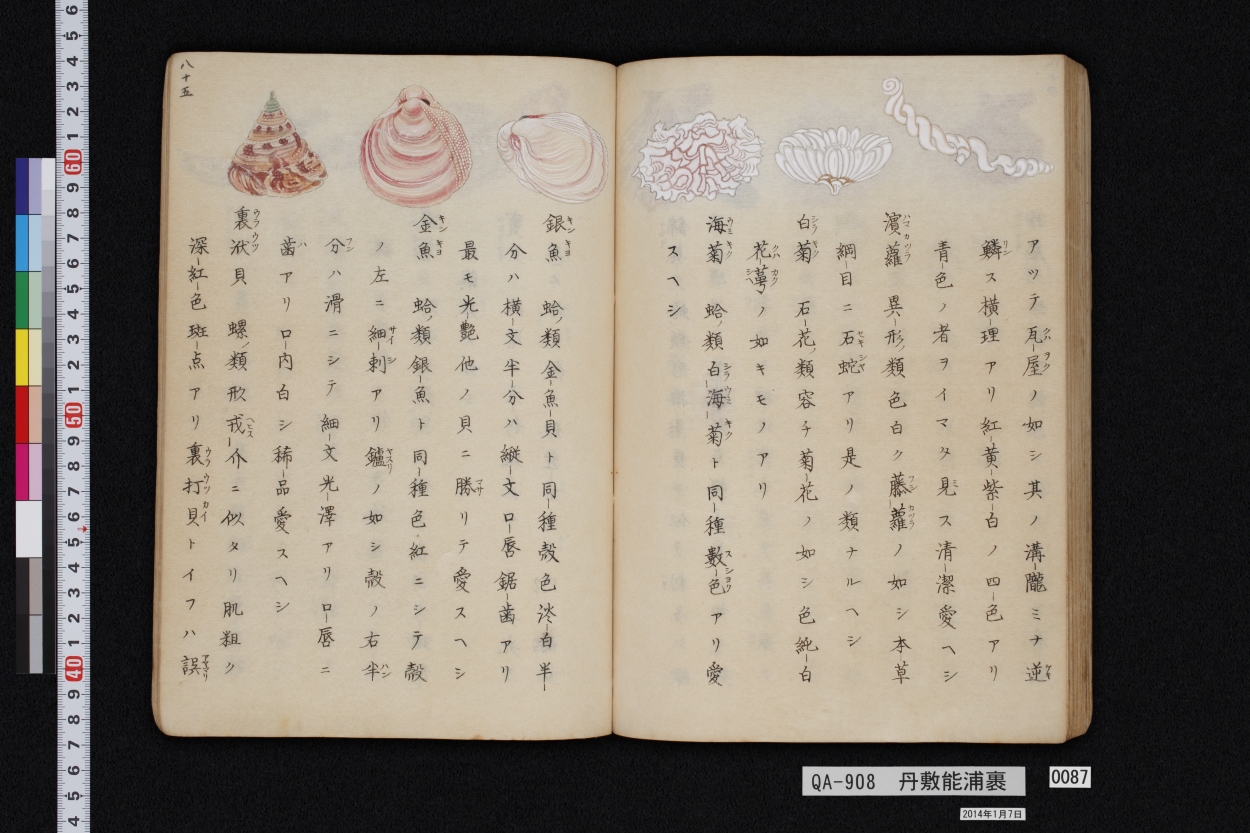 アツテ瓦屋ノ如シ其ノ溝隴ミナ逆
鱗ス横理アリ紅黄紫白ノ四色アリ
青色ノ者ヲイマタ見ス清潔愛ヘシ
濱蘿 異形ノ類色白ク藤蘿ノ如シ本草
綱目ニ石蛇アリ是ノ類ナルヘシ
白菊 石花ノ類容チ菊花ノ如シ色純白
花萼ノ如キモノアリ
海菊 蛤ノ類白海菊ト同種數色アリ愛
スヘシ
銀魚 蛤ノ類金魚貝ト同種殻色淡白半
分ハ横文半分ハ縦文口唇鋸歯アリ
最モ光艶他ノ貝ニ勝リテ愛スヘシ
金魚 蛤ノ類銀魚ト同種色紅ニシテ殻
ノ左ニ細刺アリ鑢ノ如シ殻ノ右半
分ハ滑ニシテ細文光澤アリ口唇ニ
歯アリ口内白シ稀品愛スヘシ
裏貝 螺ノ類形戎介ニ似タリ肌粗ク
深紅色斑点アリ裏打貝トイフハ誤
八十五
QA-908 丹敷能浦裏
0087
2014年1月7日